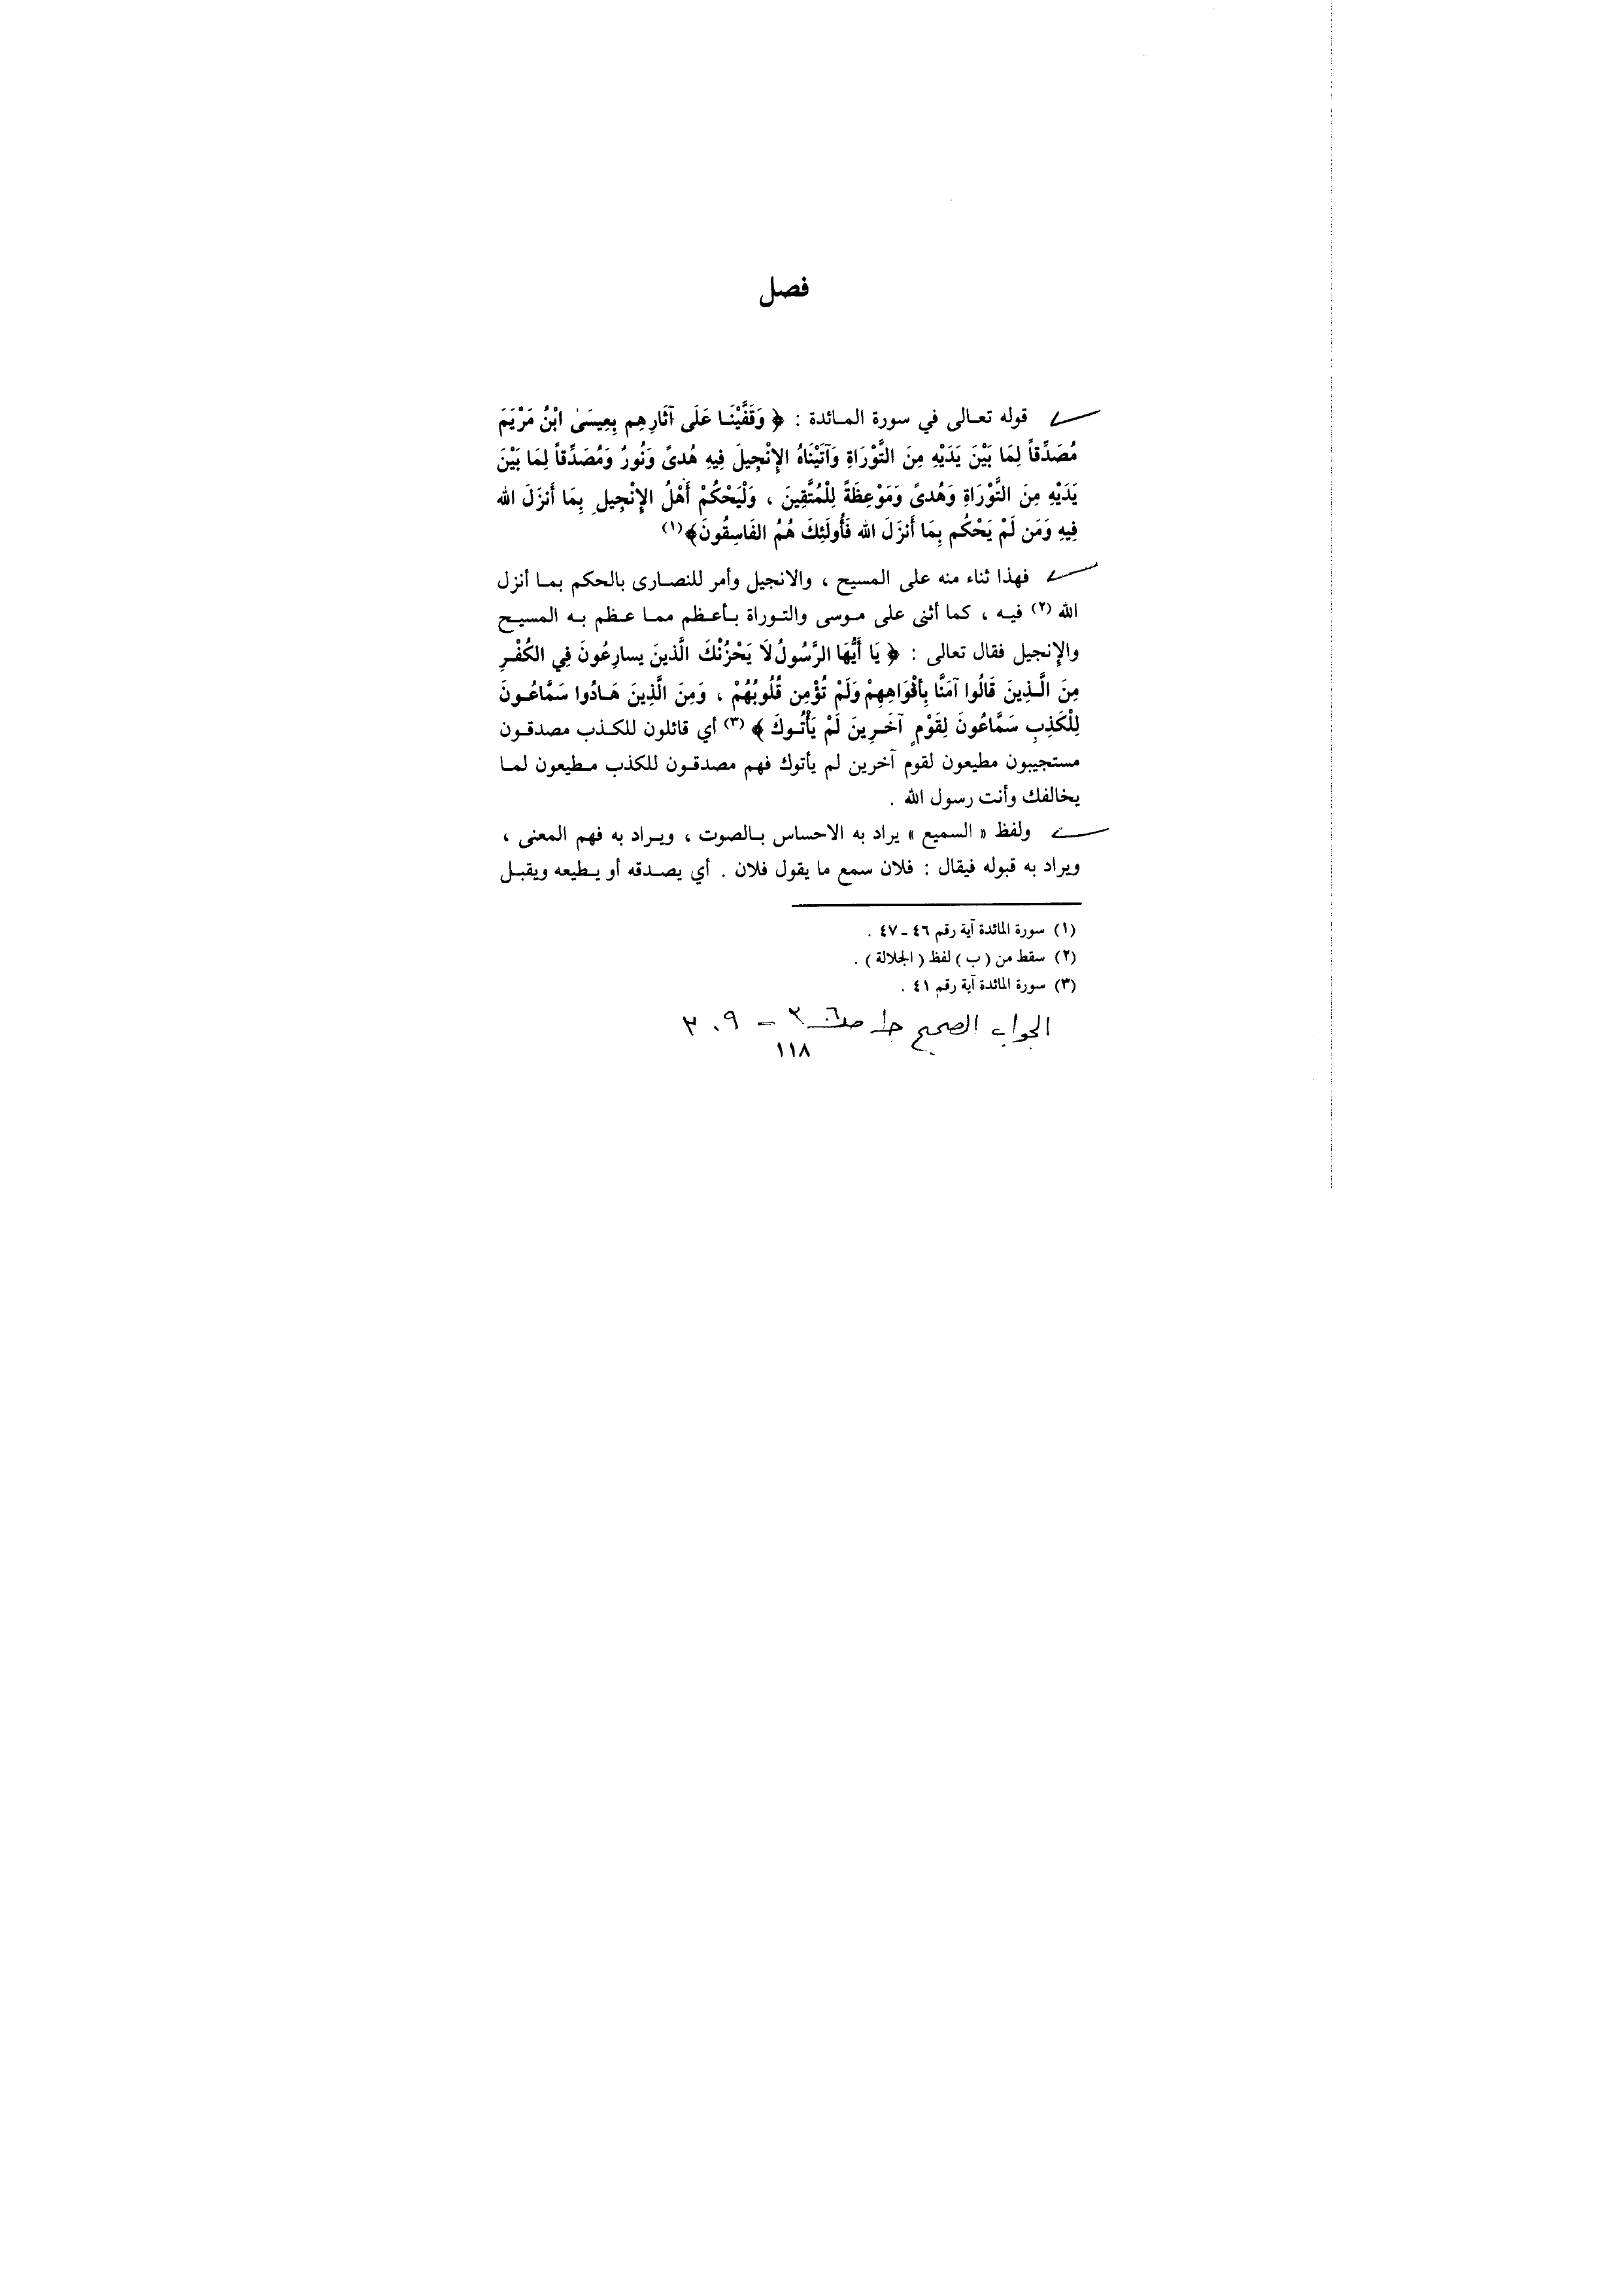 فصل
قوله تعالى في سورة المائدة : ﴿ وَقَفَّيْنَا عَلَى آثَارِهِم بِعِيسَىٰ ابْنُ مَرْيَمَ
مُصَدِّقاً لِمَا بَيْنَ يَدَيْهِ مِنَ التَّوْرَاةِ وَآتَيْنَاهُ الإِنْجِيلَ فِيهِ هُدىً وَنُورٌ وَمُصَدِّقاً لِمَا بَيْنَ
يَدَيْهِ مِنَ التَّوْرَاةِ وَهُدىً وَمَوْعِظَةً لِلْمُتَّقِينَ ، وَلْيَحْكُمْ أَهْلُ الإِنْجِيلِ بِمَا أَنزَلَ الله
فِيهِ وَمَن لَمْ يَحْكُم بِمَا أَنزَلَ الله فَأُولَئِكَ هُمُ الفَاسِقُونَ﴾(١)
فهذا ثناء منه على المسيح ، والانجيل وأمر للنصارى بالحكم بما أنزل
الله (٢) فيه ، كما أثنى على موسى والتوراة بأعظم مما عظم به المسيح
والإنجيل فقال تعالى : ﴿ يَا أَيُّهَا الرَّسُولُ لَا يَحْزُنْكَ الَّذينَ يسارِعُونَ فِي الكُفْرِ
مِنَ الَّذِينَ قَالُوا آمَنَّا بِأفْوَاهِهِمْ وَلَمْ تُؤْمِن قُلُوبُهُمْ ، وَمِنَ الَّذِينَ هَادُوا سَمَّاعُونَ
لِلْكَذِبِ سَمَّاعُونَ لِقَوْمٍ آخَرِينَ لَمْ يَأْتُوكَ ﴾ (٣) أي قائلون للكذب مصدقون
مستجيبون مطيعون لقوم آخرين لم يأتوك فهم مصدقون للكذب مطيعون لما
يخالفك وأنت رسول الله .
ولفظ « السميع » يراد به الاحساس بالصوت ، ويراد به فهم المعنى ،
ويراد به قبوله فيقال : فلان سمع ما يقول فلان . أي يصدقه أو يطيعه ويقبل
(١) سورة المائدة آية رقم ٤٦ - ٤٧ .
(٢) سقط من ( ب ) لفظ ( الجلالة ) .
(٣) سورة المائدة آية رقم ٤١ .
الجواب الصحيح ج١ ص٣٠٦ - ٣٠٩
١١٨